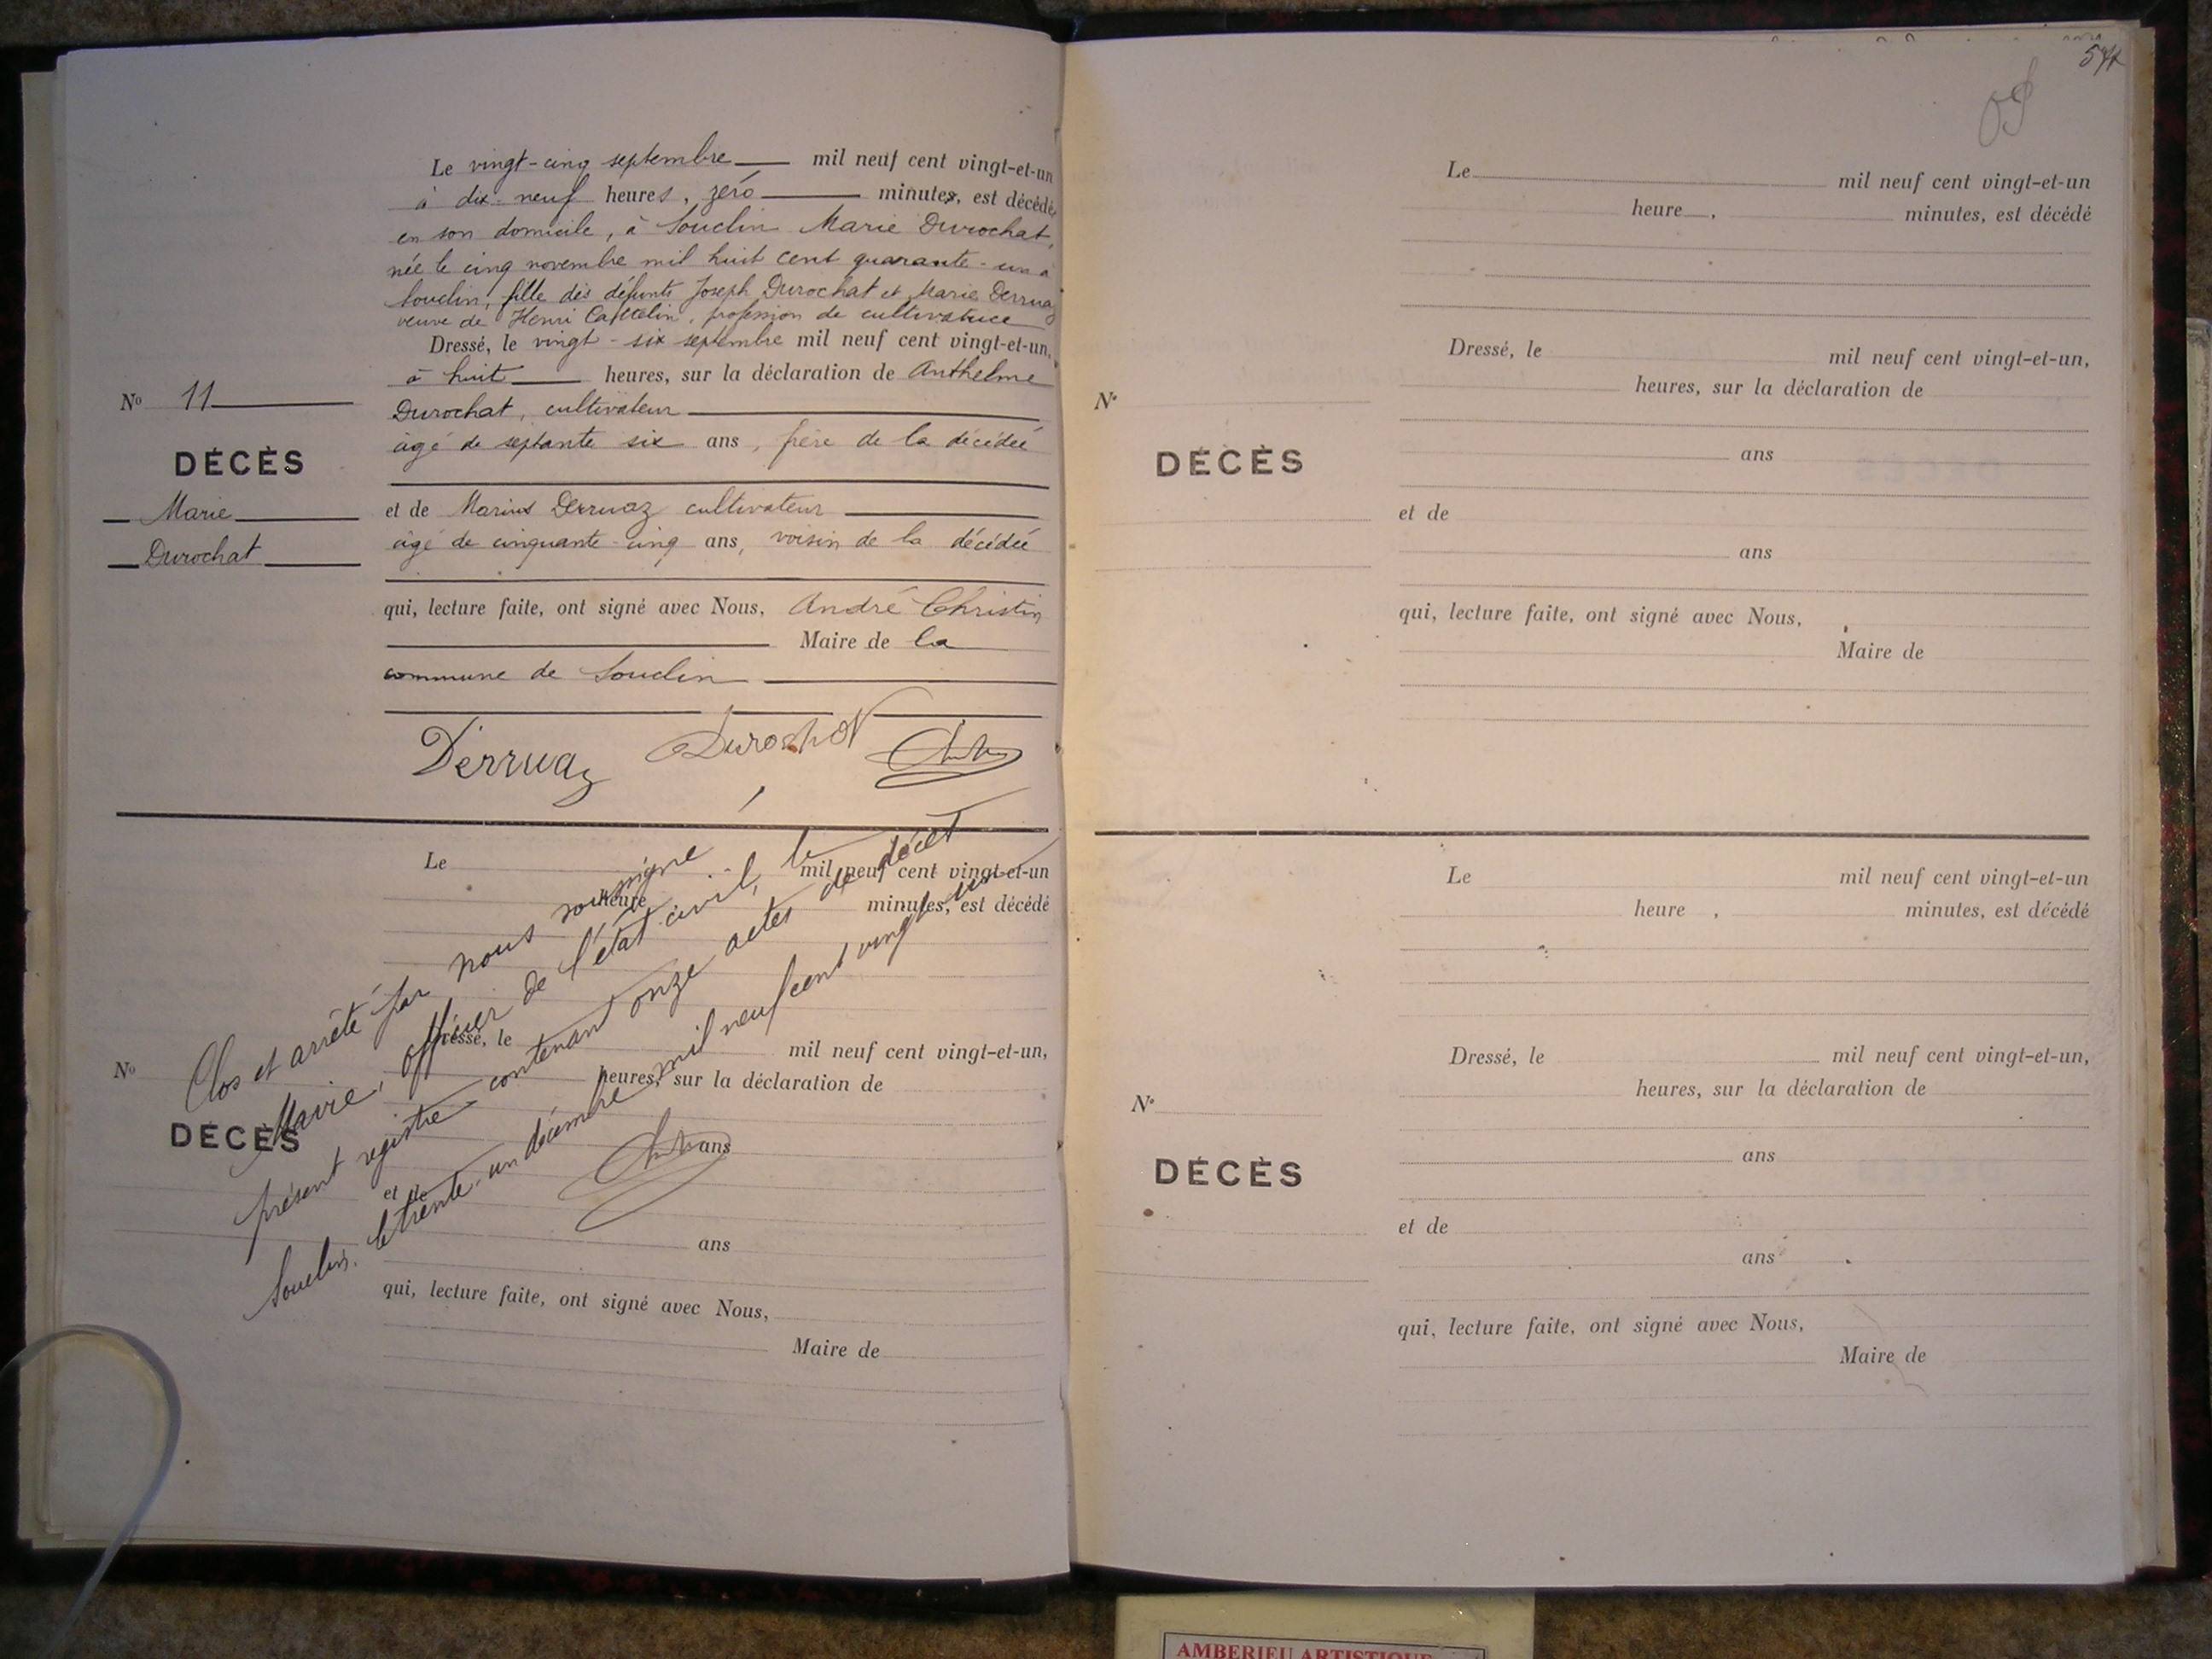 Le vingt-cinq septembre mil neuf cent vingt-et-un
à dix-neuf heures, zéro minutes, est décédée
en son domicile, à Souclin Marie Durochat,
née le cinq novembre mil huit cent quarante-un à
Souclin, fille des défunts Joseph Durochat et Marie Derruaz
veuve de Henri profession de cultivatrice
Dressé, le vingt-six septembre mil neuf cent vingt-et-un,
à huit heures, sur la déclaration de Anthelme
Durochat, cultivateur
âgé de septante six ans, frère de la décédée
et de Marius Derruaz cultivateur
âgé de cinquante-cinq ans, voisin de la décédée
qui, lecture faite, ont signé avec Nous, André Christin
Maire de la
commune de Souclin
Derruaz Durochat
No 11
DÉCÈS
Marie
Durochat
Le mil neuf cent vingt-et-un
heure minutes, est décédé
Dressé, le mil neuf cent vingt-et-un,
heures, sur la déclaration de
ans
et de
ans
qui, lecture faite, ont signé avec Nous,
Maire de
No
DÉCÈS
Clos et arrêté par nous soussigné
Maire, officier de l'état civil, le
présent registre contenant onze actes de décès
Souclin, le trente-un décembre mil neuf cent vingt un
Le mil neuf cent vingt-et-un
heure , minutes, est décédé
Dressé, le mil neuf cent vingt-et-un,
heures, sur la déclaration de
ans
et de
ans
qui, lecture faite, ont signé avec Nous,
Maire de
N°
DÉCÈS
Le mil neuf cent vingt-et-un
heure , minutes, est décédé
Dressé, le mil neuf cent vingt-et-un,
heures, sur la déclaration de
ans
et de
ans
qui, lecture faite, ont signé avec Nous,
Maire de
N°
DÉCÈS
AMBERIEU ARTISTIQUE